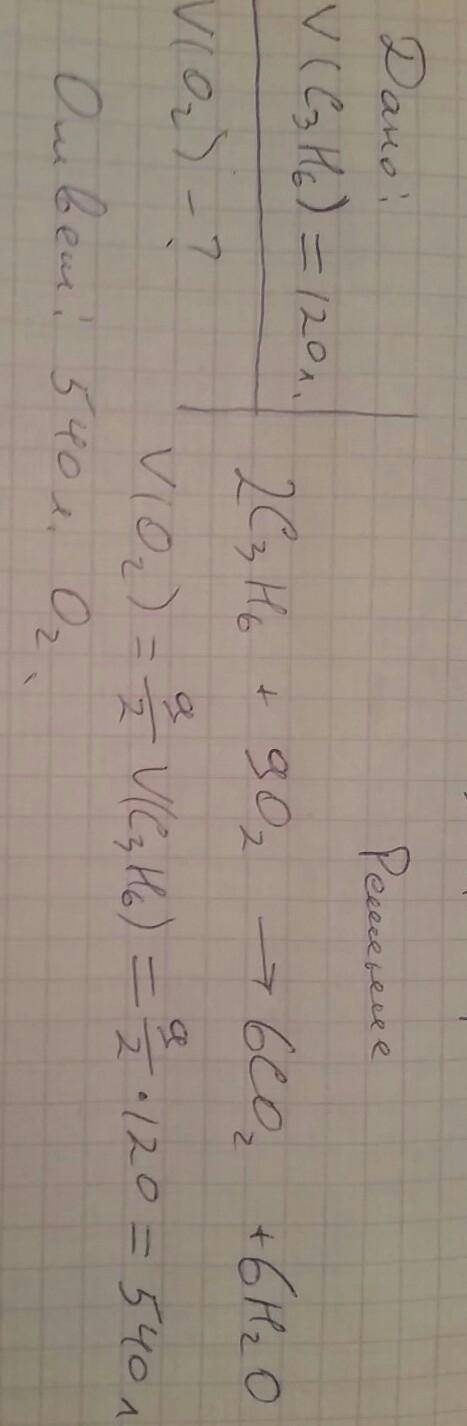 Дано:
V(C₃H₆) = 120л.
V(O₂) - ?
Решение
2C₃H₆ + 9O₂ → 6CO₂ + 6H₂O
V(O₂) = 9/2 V(C₃H₆) = 9/2 · 120 = 540 л
Ответ: 540 л. O₂.